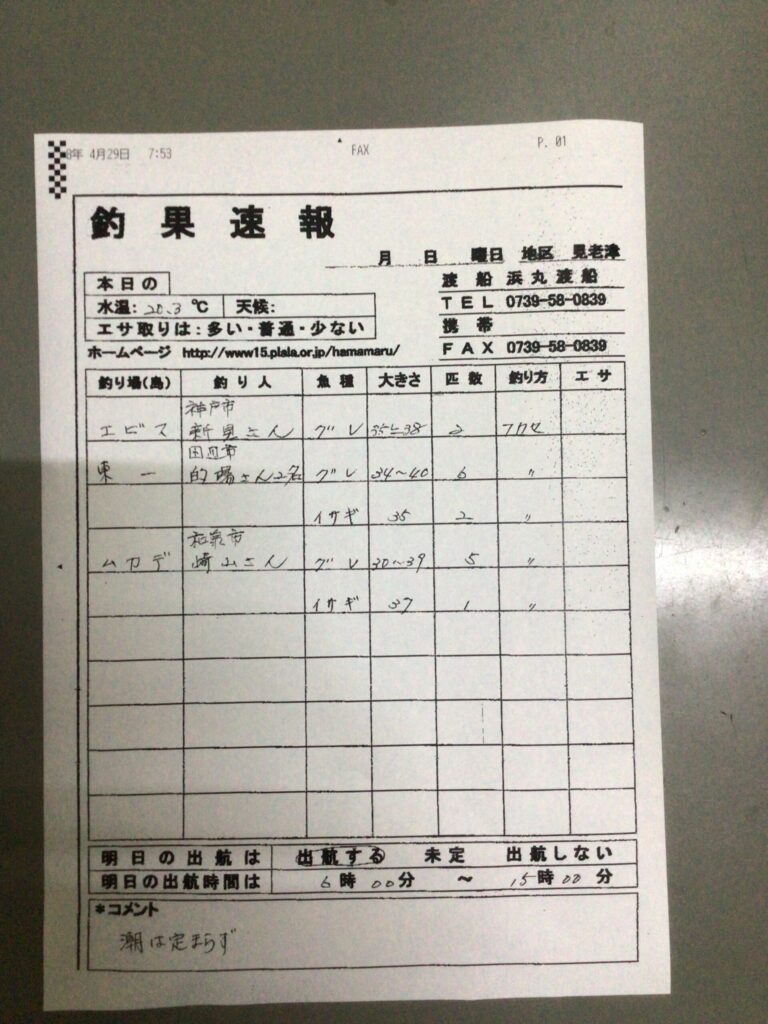 8年 4月29日 7:53 FAX P. 01
釣果速報
月 日 曜日 地区 見老津
渡船 浜丸渡船
本日の
水温: 20.3 ℃ 天候:
TEL 0739-58-0839
エサ取りは:多い・普通・少ない
携帯
ホームページ http://www15.plala.or.jp/hamamaru/
FAX 0739-58-0839
釣り場(島) 釣り人 魚種 大きさ 匹数 釣り方 エサ
神戸市
エビス 新見さん グレ 35と38 2 フカセ
田辺市
東一 的場さん2名 グレ 34〜40 6 〃
イサギ 35 2 〃
和泉市
ムカデ 崎山さん グレ 30〜39 5 〃
イサギ 37 1 〃
明日の出航は 出航する 未定 出航しない
明日の出航時間は 6時00分 〜 15時00分
*コメント
潮は定まらず